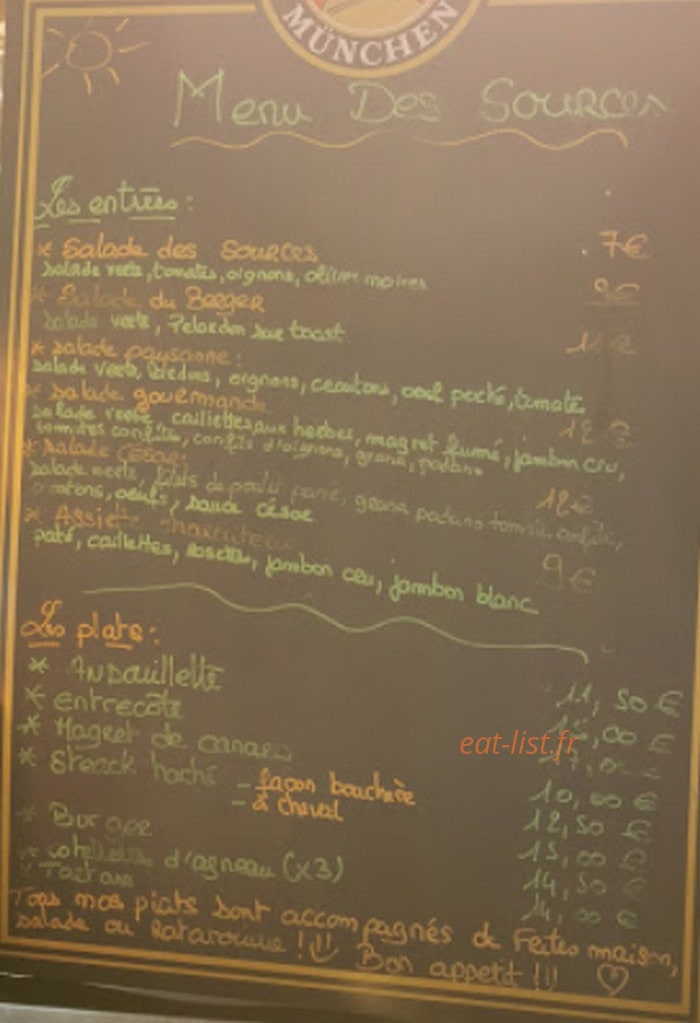 MÜNCHEN
Menu Des Sources
Les entrées :
* Salade des Sources 7€
Salade verte, tomates, oignons, olives noires
* Salade du Berger 9€
Salade verte, Pelardon sur toast
* Salade paysanne : 11€
Salade verte, lardons, oignons, croutons, oeuf poché, tomate.
* Salade gourmande 12€
Salade verte, caillettes aux herbes, magret fumé, jambon cru,
tomates confites, confits d'oignons, grana, padano
* Salade César : 12€
Salade verte, filets de poulet pané, grana padano tomate confite,
croutons, oeufs, sauce césar
* Assiette charcuterie 9€
paté, caillettes, rosette, jambon cru, jambon blanc
Les plats :
* Andouillette 11,50€
* Entrecôte ,00€
* Magret de canard
* Steack haché - façon bouchère 10,00€
- à cheval 12,50€
* Burger 15,00€
* cotelettes d'agneau (x3) 14,50€
* Tartare 14,00€
Tous mos plats sont accompagnés de Frites maison,
salade ou Ratatouille !!! Bon appetit !!!
eat-list.fr